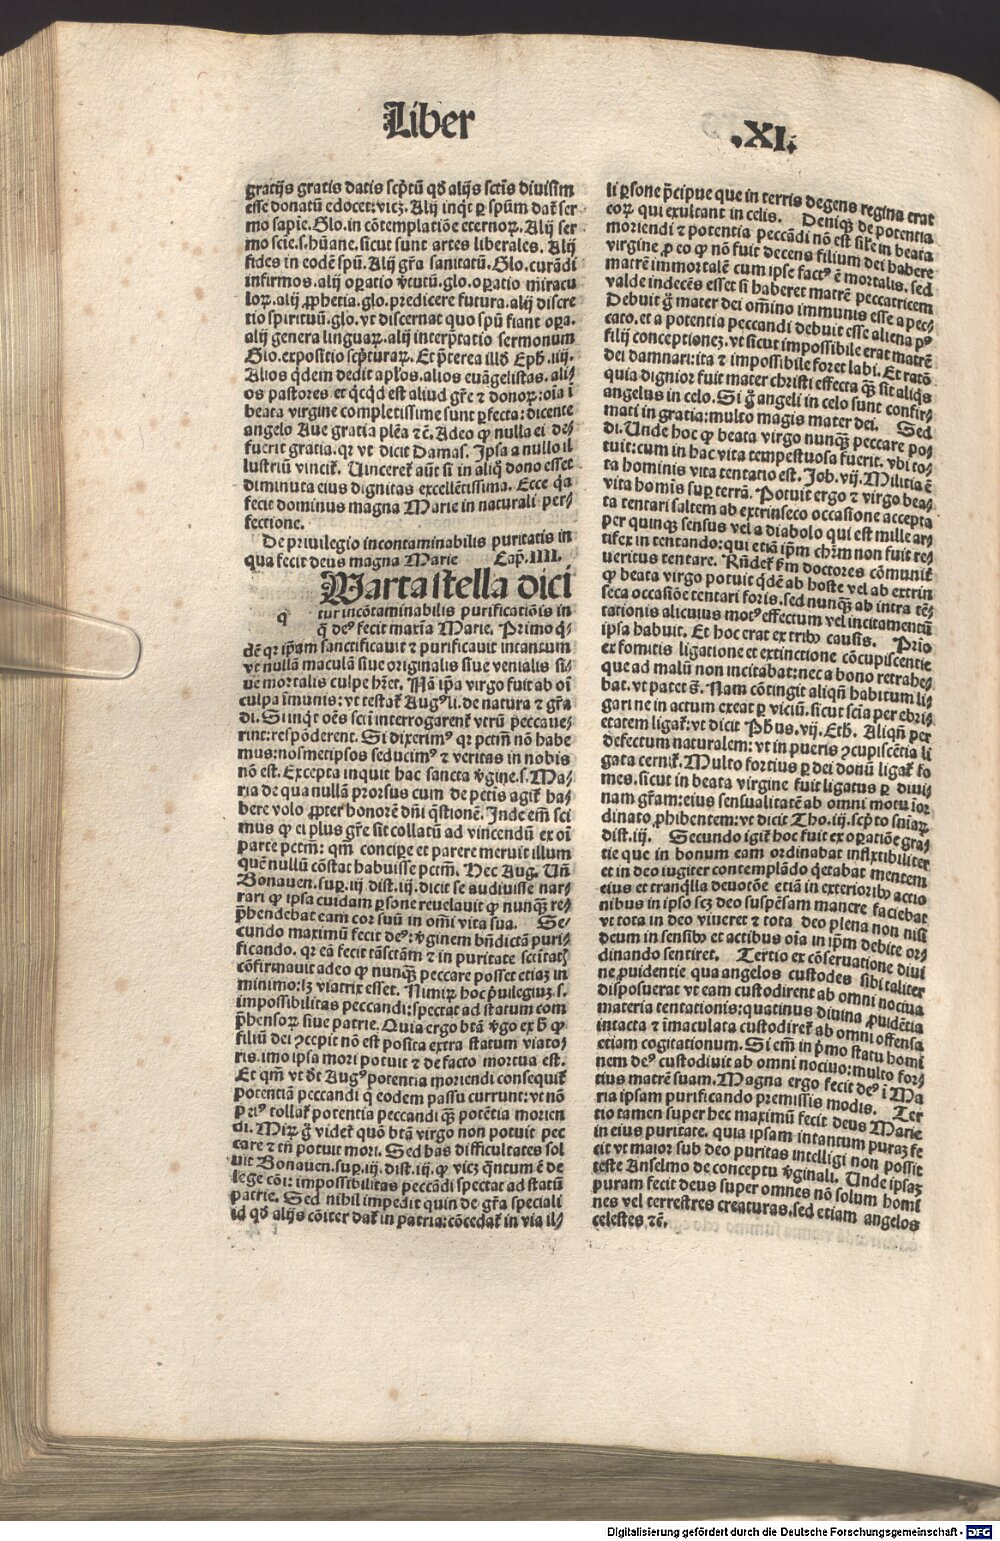 Liber .XI.
gratijs gratis datis scͥptũ qđ alijs sctĩs diuisim
esse donatũ edocet: vicȝ. Alij inq̃t ꝑ spũm dat᷑ ser
mo sapiẽ. Glo. in cõtemplatiõe eternoꝝ. Alij ser
mo sciẽ. s. hũane. sicut sunt artes liberales. Alij
fides in eodẽ spũ. Alij grã sanitatũ. Glo. curãdi
infirmos. alij oꝑatio v̾tutũ. glo. oꝑatio miracu
loꝝ. alij ꝓphetia. glo. predicere futura. alij discre
tio spirituũ. glo. vt discernat quo spũ fiant oꝑa.
alij genera linguaꝝ. alij interp̃tatio sermonum
Glo. expositio scͥpturaꝝ. Et p̃terea illđ Eph̃. iiij.
Alios q̃dem dedit aplõs. alios euãgelistas. ali⸗
os pastores et q̃cq̃d est aliud gr̃e ⁊ donoꝝ: oĩa ĩ
beata virgine completissime sunt ꝑfecta: dicente
angelo Aue gratia plẽa ⁊c̃. Adeo ꝙ nulla ei de⸗
fuerit gratia. qꝛ vt dicit Damas. Ipsa a nullo il
lustriũ vincit᷑. Uinceret᷑ aũt si in aliq̃ dono esset
diminuta eius dignitas excellẽtissima. Ecce q̃a
fecit dominus magna Marie in naturali per⸗
fectione.
De priuilegio incontaminabilis puritatis in
qua fecit deus magna Marie Cap̃. IIII.
Maria stella dici
q tur incõtaminabilis purificatiõis in
q̃ deꝰ fecit maxĩa Marie. Primo q̃⸗
dẽ qꝛ ip̃am sanctificauit ⁊ purificauit intantum
vt nullã maculã siue originalis siue venialis si⸗
ue mortalis culpe hr̃et. Nã ip̃a virgo fuit ab oĩ
culpa ĩmunis: vt testat᷑ Augꝰ li. de natura ⁊ grã
di. Si inq̃t oẽs scti interrogarent᷑ vtrũ peccaue⸗
rint: respõderent. Si dixerimꝰ qꝛ pctm̃ nõ habe
mus: nosmetipsos seducimꝰ ⁊ veritas in nobis
nõ est. Excepta inquit hac sancta v̾gine. s. Ma⸗
ria de qua nullã prorsus cum de pctis agit᷑ ha⸗
bere volo ꝓpter honorẽ dñi q̃stionẽ. Inde em̃ sci
mus ꝙ ei plus gr̃e sit collatũ ad vincendũ ex oĩ
parte pctm̃: qm̃ concipe et parere meruit illum
quẽ nullũ cõstat habuisse pctm̃. Hec Aug. Un̄
Bonauen. suꝑ. iij dist. iij. dicit se audiuisse nar⸗
rari ꝙ ipsa cuidam ꝑsone reuelauit ꝙ nunqꝫ re⸗
p̃hendebat eam cor suũ in om̃i vita sua. Se⸗
cundo maximũ fecit deꝰ: v̾ginem bñdictã puri⸗
ficando. qꝛ eã fecit tã sctãm ⁊ in puritate
cõfirmauit adeo ꝙ nunqꝫ peccare posset etiaȝ in
minimo: lȝ viatrix esset. Nimiꝝ hoc p̃uilegiuȝ. s.
impossibilitas peccandi: spectat ad statum com
p̃hensoꝝ siue patrie. Quia ergo btã v̾go ex h̃ ꝙ
filiũ dei ꝯcepit nõ est posita extra statum viato⸗
ris. imo ipsa mori potuit ⁊ de facto mortua est.
Et qm̃ vt dt̃ Augꝰ potentia moriendi consequit᷑
potentiã peccandi q̃ eodem passu currunt: vt nõ
pͥꝰ tollat᷑ potentia peccandi qꝫ potẽtia morien
di. Miꝝ g̃ videt᷑ quõ btã virgo non potuit pec
care ⁊ tñ potuit mori. Sed has difficultates sol
uit Bonauen. suꝑ. iij. dist. iij. ꝙ vicȝ q̃ntum ẽ de
lege cõi: impossibilitas peccãdi spectat ad statũ
patrie. Sed nihil impedit quin de gr̃a speciali
id qđ alijs cõiter dat᷑ in patria: cõcedat᷑ in via il⸗
li ꝑsone p̃cipue que in terris degens regina erat
eoꝝ qui exultant in celis. Deniqꝫ de potentia
moriendi ⁊ potentia peccãdi nõ est sil̃e in beata
virgine ꝓ eo ꝙ nõ fuit decens filium dei habere
matrẽ immortalẽ cum ipse factꝰ ẽ mortalis. sed
valde indecẽs esset si haberet matrẽ peccatricem
Debuit g̃ mater dei om̃ino immunis esse a pec⸗
cato. et a potentia peccandi debuit esse aliena pꝰ
filij conceptioneȝ. vt sicut impossibile erat matrẽ
dei damnari: ita ⁊ impossibile foret labi. Et ratõ
quia dignior fuit mater christi effecta qꝫ sit aliq̃s
angelus in celo. Si g̃ angeli in celo sunt confir⸗
mati in gratia: multo magis mater dei. Sed
di. Unde hoc ꝙ beata virgo nunqꝫ peccare po⸗
tuit: cum in hac vita tempestuosa fuerit. vbi to⸗
ta hominis vita tentatio est. Job. vij. Militia ẽ
vita homĩs suꝑ terrã. Potuit ergo ⁊ virgo bea⸗
ta tentari saltem ab extrinseco occasione accepta
per quinqꝫ sensus vel a diabolo qui est mille ar⸗
tifex in tentando: qui etiã ip̃m chr̃m non fuit re⸗
ueritus tentare. Rñdet᷑ ẜm doctores cõmunit̾
ꝙ beata virgo potuit q̃dẽ ab hoste vel ab extrin
seca occasiõe tentari foris. sed nunqꝫ ab intra tẽ⸗
tationis alicuius motꝰ effectum vel incitamentũ
ipsa habuit. Et hoc erat ex tribꝰ causis. Prĩo
ex fomitis ligatione et extinctione cõcupiscentie
que ad malũ non incitabat: nec a bono retrahe⸗
bat. vt patet s̃. Nam cõtingit aliqñ habitum li⸗
gari ne in actum exeat ꝑ viciũ. sicut scĩa per ebri⸗
etatem ligat᷑: vt dicit Ph̃us. vij. Eth̃. Aliqñ per
defectum naturalem: vt in pueris ꝯcupiscẽtia li
gata cernit᷑. Multo fortius ꝑ dei donũ ligat᷑ fo
mes. sicut in beata virgine fuit ligatus ꝑ diui
nam gr̃am: eius sensualitatẽ ab omni motu ĩor
dinato ꝓhibentem: vt dicit Tho. iij. scͥpto sniaꝝ
dist. iij. Secundo igit᷑ hoc fuit ex oꝑatiõe gra⸗
tie que in bonum eam ordinabat inflexibiliter
et in deo iugiter contemplãdo q̃etabat mentem
eius et tranq̃lla deuotõe etiã in exterioribꝰ actio
nibus in ipso scȝ deo suspẽsam manere faciebat
vt tota in deo viueret ⁊ tota deo plena non nisi
deum in sensibꝰ et actibus oĩa in ip̃m debite or⸗
dinando sentiret. Tertio ex cõseruatione diui
ne ꝓuidentie qua angelos custodes sibi taliter
disposuerat vt eam custodirent ab omni nociua
materia tentationis: quatinus diuina ꝓuidẽtia
intacta ⁊ ĩmaculata custodiret᷑ ab omni offensa
etiam cogitationum. Si em̃ in pͥmo statu homi
nem deꝰ custodiuit ab omni nociuo: multo for⸗
tius matrẽ suam. Magna ergo fecit deꝰ ĩ Ma
ria ipsam purificando premissis modis. Ter
tio tamen super hec maximũ fecit deus Marie
in eius puritate. quia ipsam intantum puraȝ fe
cit vt maior sub deo puritas intelligi non possit
teste Anselmo de conceptu v̾ginali. Unde ipsaȝ
puram fecit deus super omnes nõ solum homi
nes vel terrestres creaturas. sed etiam angelos
celestes ⁊c̃.
Digitalisierung gefördert durch die Deutsche Forschungsgemeinschaft - DFG